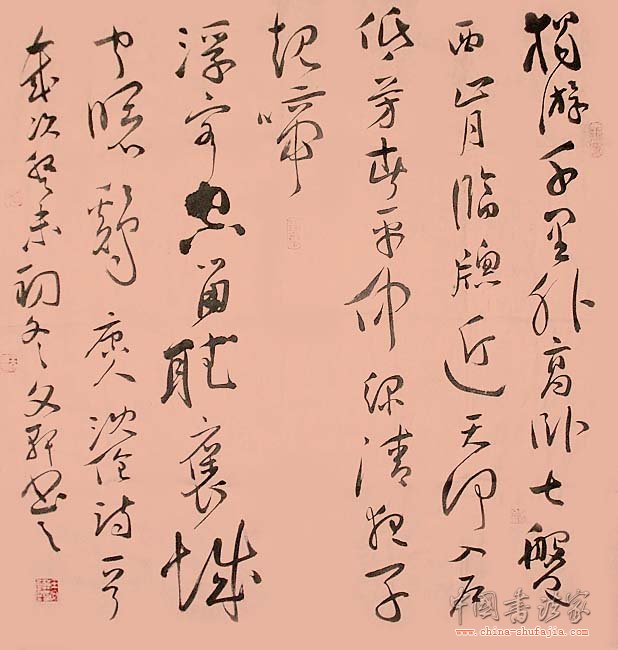 獨游千里外高卧七盤
西山月臨牕近天河入户
低芳春平仲緑清夜子
規啼
浮客空留聽褒城
闻曙鷄 唐人沈佺詩一首
歲次癸未初冬文軒書之
中国书法家
www.china-shufajia.com